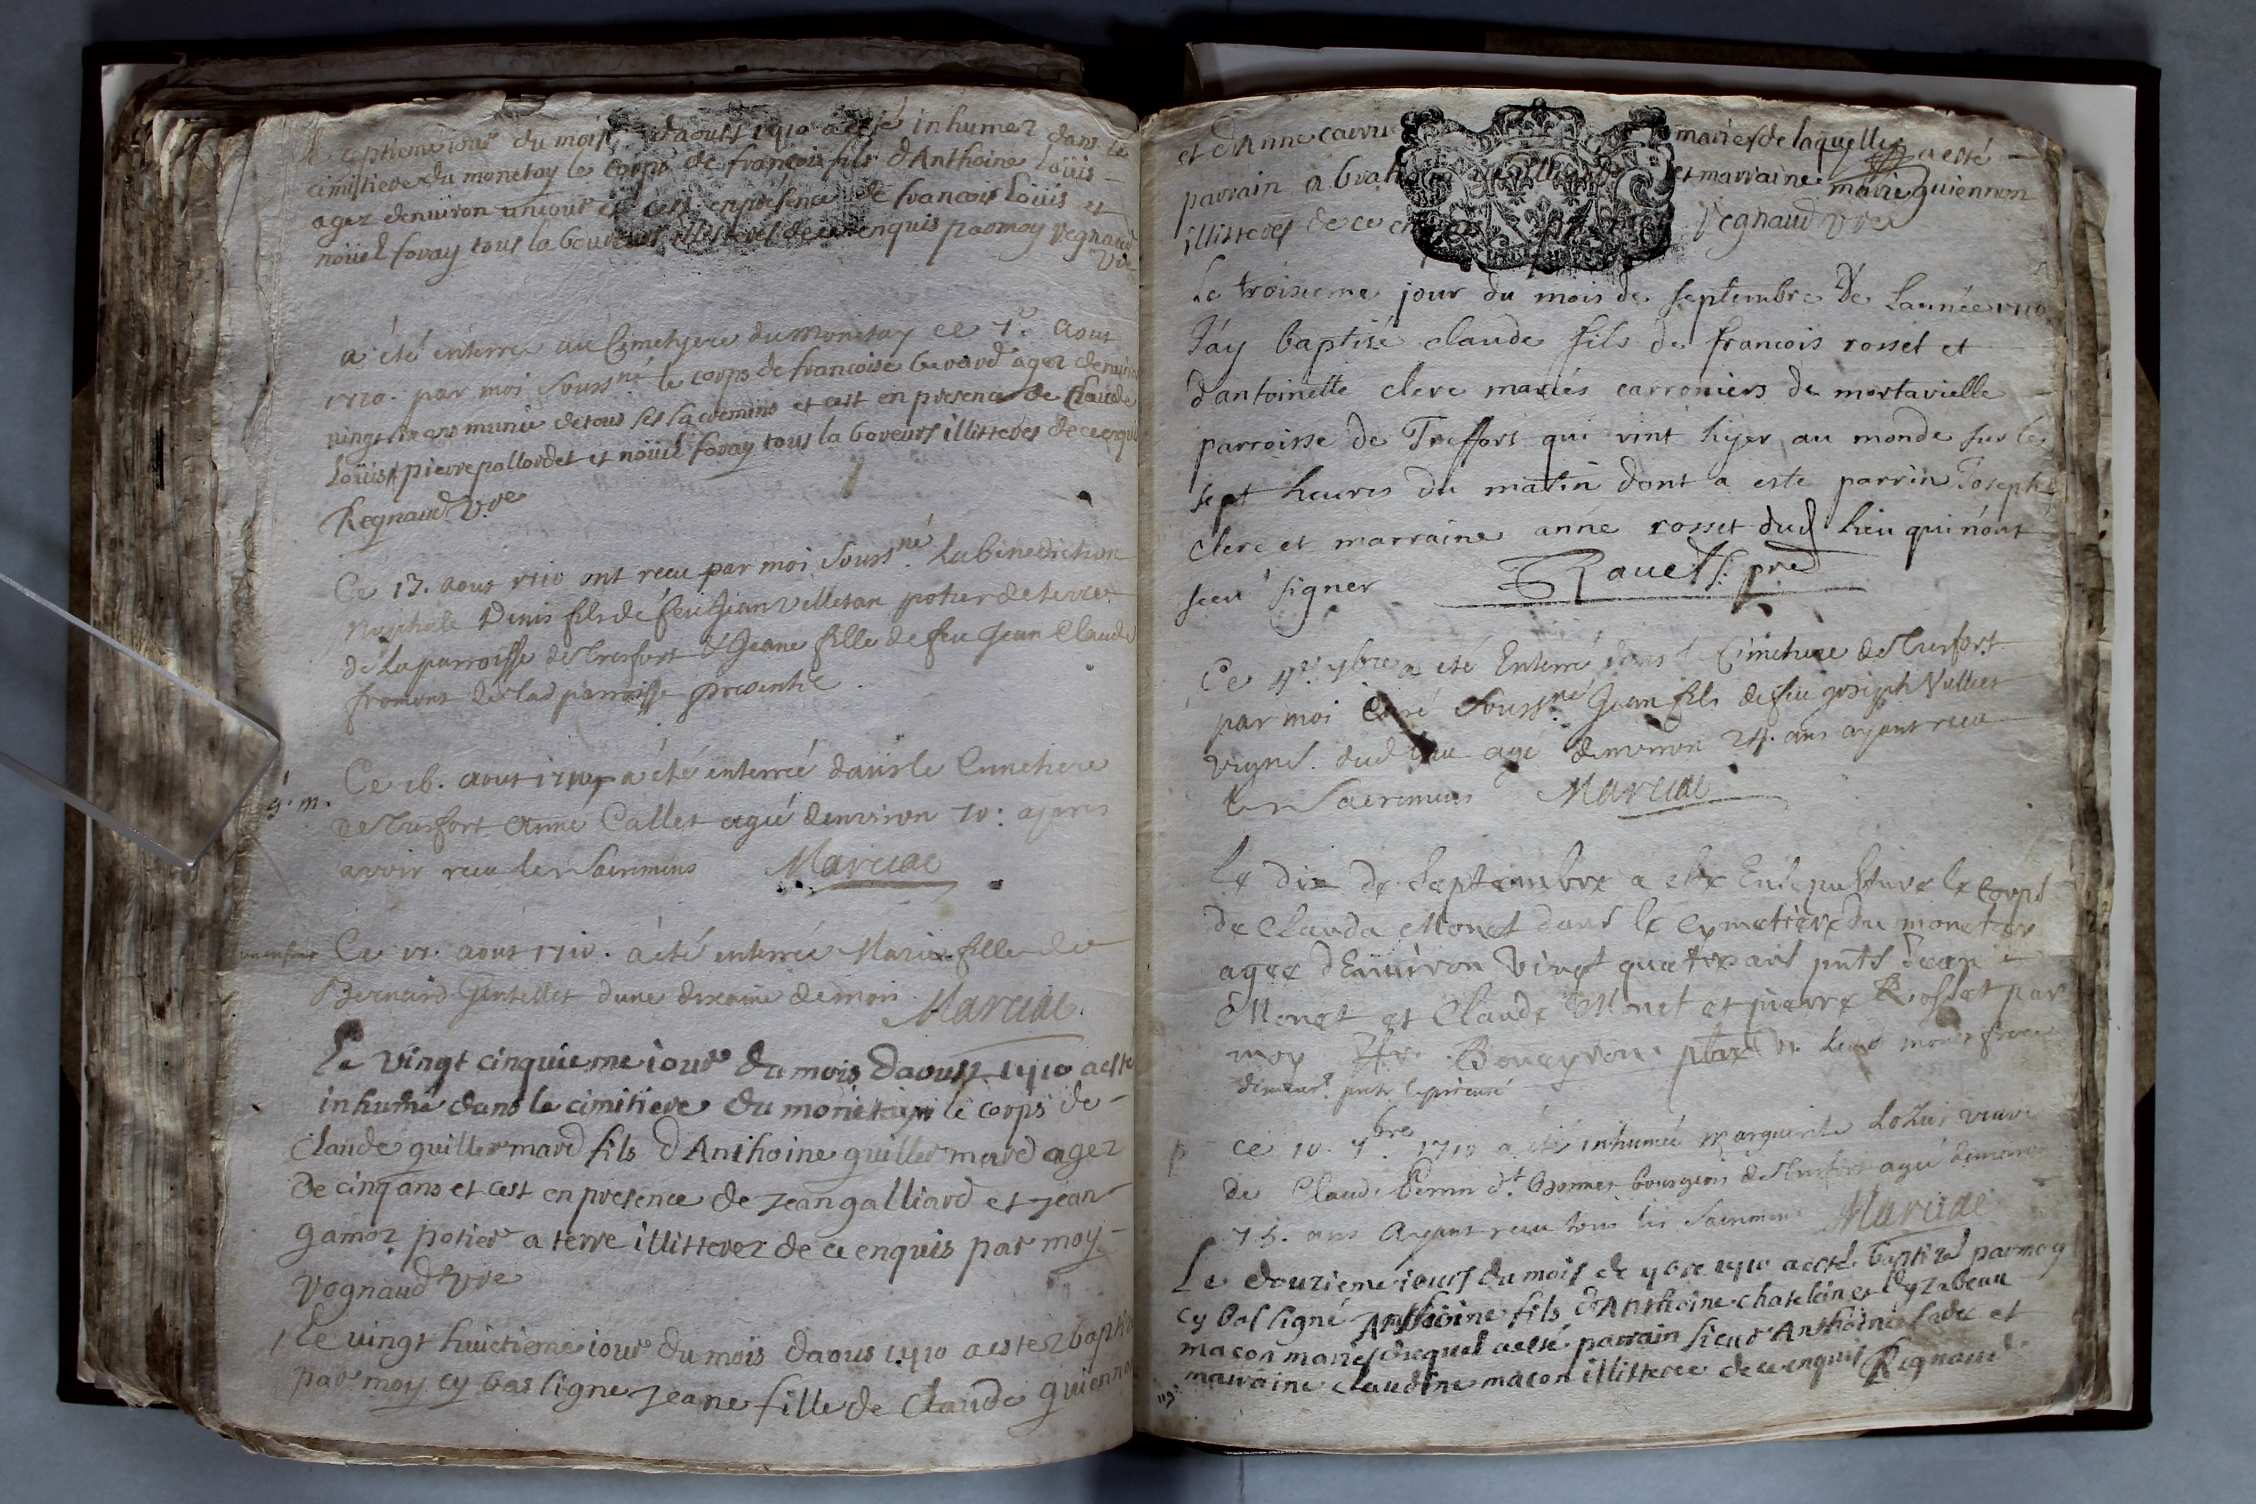 du mois daoust 1710 a esté inhumez dans le
cimistiere du monetay le corps de françois fils d'Anthoine Loüis
agez denuiron un jour et cest en présence de francois Loüis et
noüel foray tous laboureurs illitteres de ce enquis par moy Regnaud
Vre
a été enterré au Cimetyere du Monetay ce 7e Aout
1710. par moi Soussné le corps de francoise berard agez denuiron
vingt six ans munie de tous ses sacremins et cest en presence de Claude
Loüis pierre pallordet et noüel foray tous laboveurs illitteres de ce enquis
Regnaud Vre
Ce 13. aous 1710 ont receu par moi Soussné la bénédiction
Nuptiale Denis fils de feu Jean Villetan potier de terre
de la parroisse de Treffort & Jeane fille de feu Jean Claude
fromont de lad parroisse presente
g. m.
Ce 16. aout 1710 a été enterreé dans le Cimetiere
de Treffort Anne Callet agé denviron 70: apres
avoir receu les Sacremens Marciac
Ce 17. aout 1710. a été enterreé Marie fille de
Bernard Gentellet dune dixaine de mois Marciac.
Le vingt cinquieme iour du mois daoust 1710 a esté
inhumé dans le cimitiere du monetay le corps de
Claude guillermard fils d'Anthoine guillermard agez
De cinq ans et cest en presence de Jean galliard et Jean
gamoz potier a terre illitterez de ce enquis par moy
Regnaud Vre
Le vingt huictieme iour du mois daous 1710 a estez baptisé
par moy cy bas signe Jeane fille de Claude guiennon
et d'Anne mariés de laquelle a esté
parrain et marraine marie guiennon
illitteres de ce Regnaud Vre
Le troisieme jour du mois de septembre De Lannée 1710
J'ay baptisé claude fils de francois rosset et
d'antoinette clerc mariés carroniers de mortavielle
parroisse de Treffort qui vint hyer au monde sur le
sept heures du matin dont a este parrin Joseph
Clerc et marraine anne rosset dud lieu qui n'ont
sceu signer Rauet pre
Ce 4e 7bre a été Enterré dans le Cimetiere de Treffort
par moi Curé Soussné Jean fils de feu Joseph Vulliet
vigne. dud lieu agé denviron 24. ans ayant receu
les Sacremens Marciac
Le dix de Septembre a este Ensepulture le Corps
de Clauda Monet dans le cymetiere du monetay
agee d'Enuiron Vingt quatre ans pnts Jean
Monet et Claude Monet et pierre Rosset par
moy Boueyron
ce 10. 7bre 1710 a été inhumeé Marguerite veuve
de Claude Perrin dt Bonnet bourgeois de Treffort ageé denviron
75. ans ayant receu tous les Sacremens Marciac
Le douzieme iours du mois de 7bre 1710 a esté baptizé par moy
cy bas signé Anthoine fils d'Anthoine chatelein et Elyzabeau
macon mariés duquel a esté parrain sieur Anthoine et
marraine claudine macon illitteree de ce enquis Regnaud
119